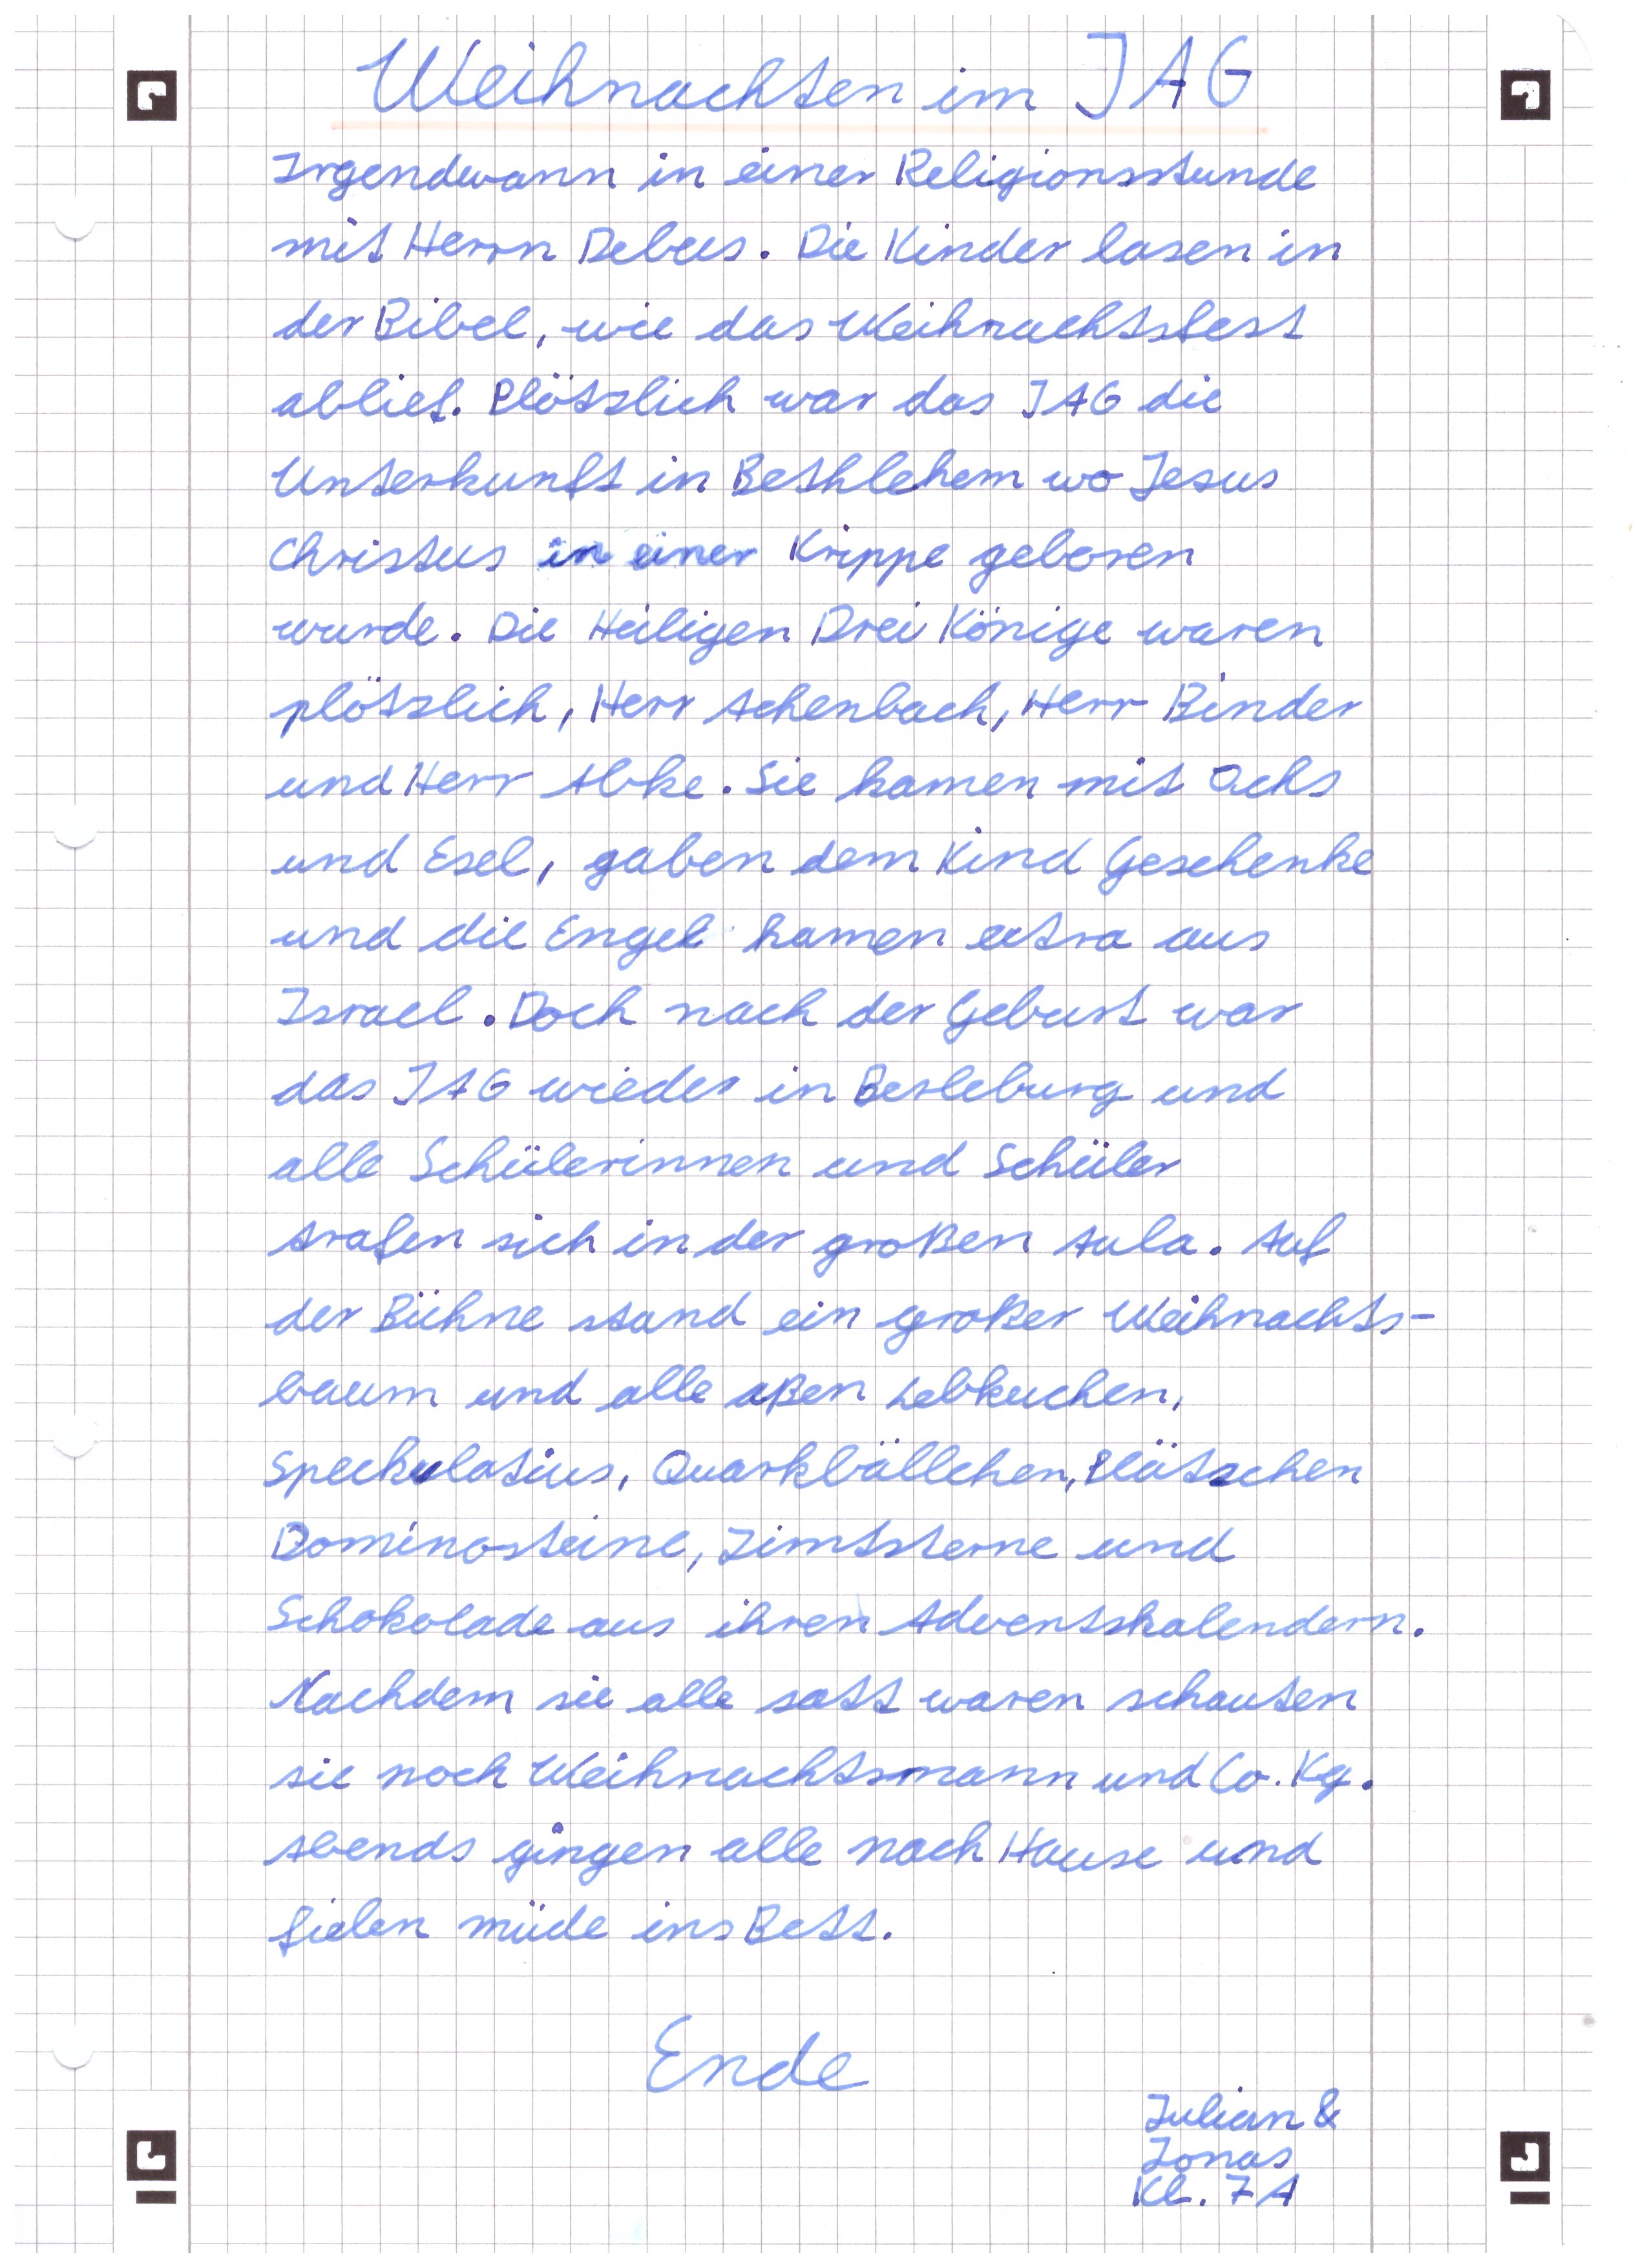 Weihnachten im JAG
Irgendwann in einer Religionsstunde
mit Herrn Debus. Die Kinder lasen in
der Bibel, wie das Weihnachtsfest
ablief. Plötzlich war das JAG die
Unterkunft in Bethlehem wo Jesus
Christus in einer Krippe geboren
wurde. Die Heiligen Drei Könige waren
plötzlich, Herr Achenbach, Herr Binder
und Herr Abke. Sie kamen mit Ochs
und Esel, gaben dem Kind Geschenke
und die Engel kamen extra aus
Israel. Doch nach der Geburt war
das JAG wieder in Berleburg und
alle Schülerinnen und Schüler
trafen sich in der großen Aula. Auf
der Bühne stand ein großer Weihnachts-
baum und alle aßen Lebkuchen,
Speckulatius, Quarkbällchen, Plätzchen
Dominosteine, Zimtsterne und
Schokolade aus ihren Adventskalendern.
Nachdem sie alle satt waren schauten
sie noch Weihnachtsmann und Co. Kg.
Abends gingen alle nach Hause und
fielen müde ins Bett.
Ende
Julian &
Jonas
Kl. 7A